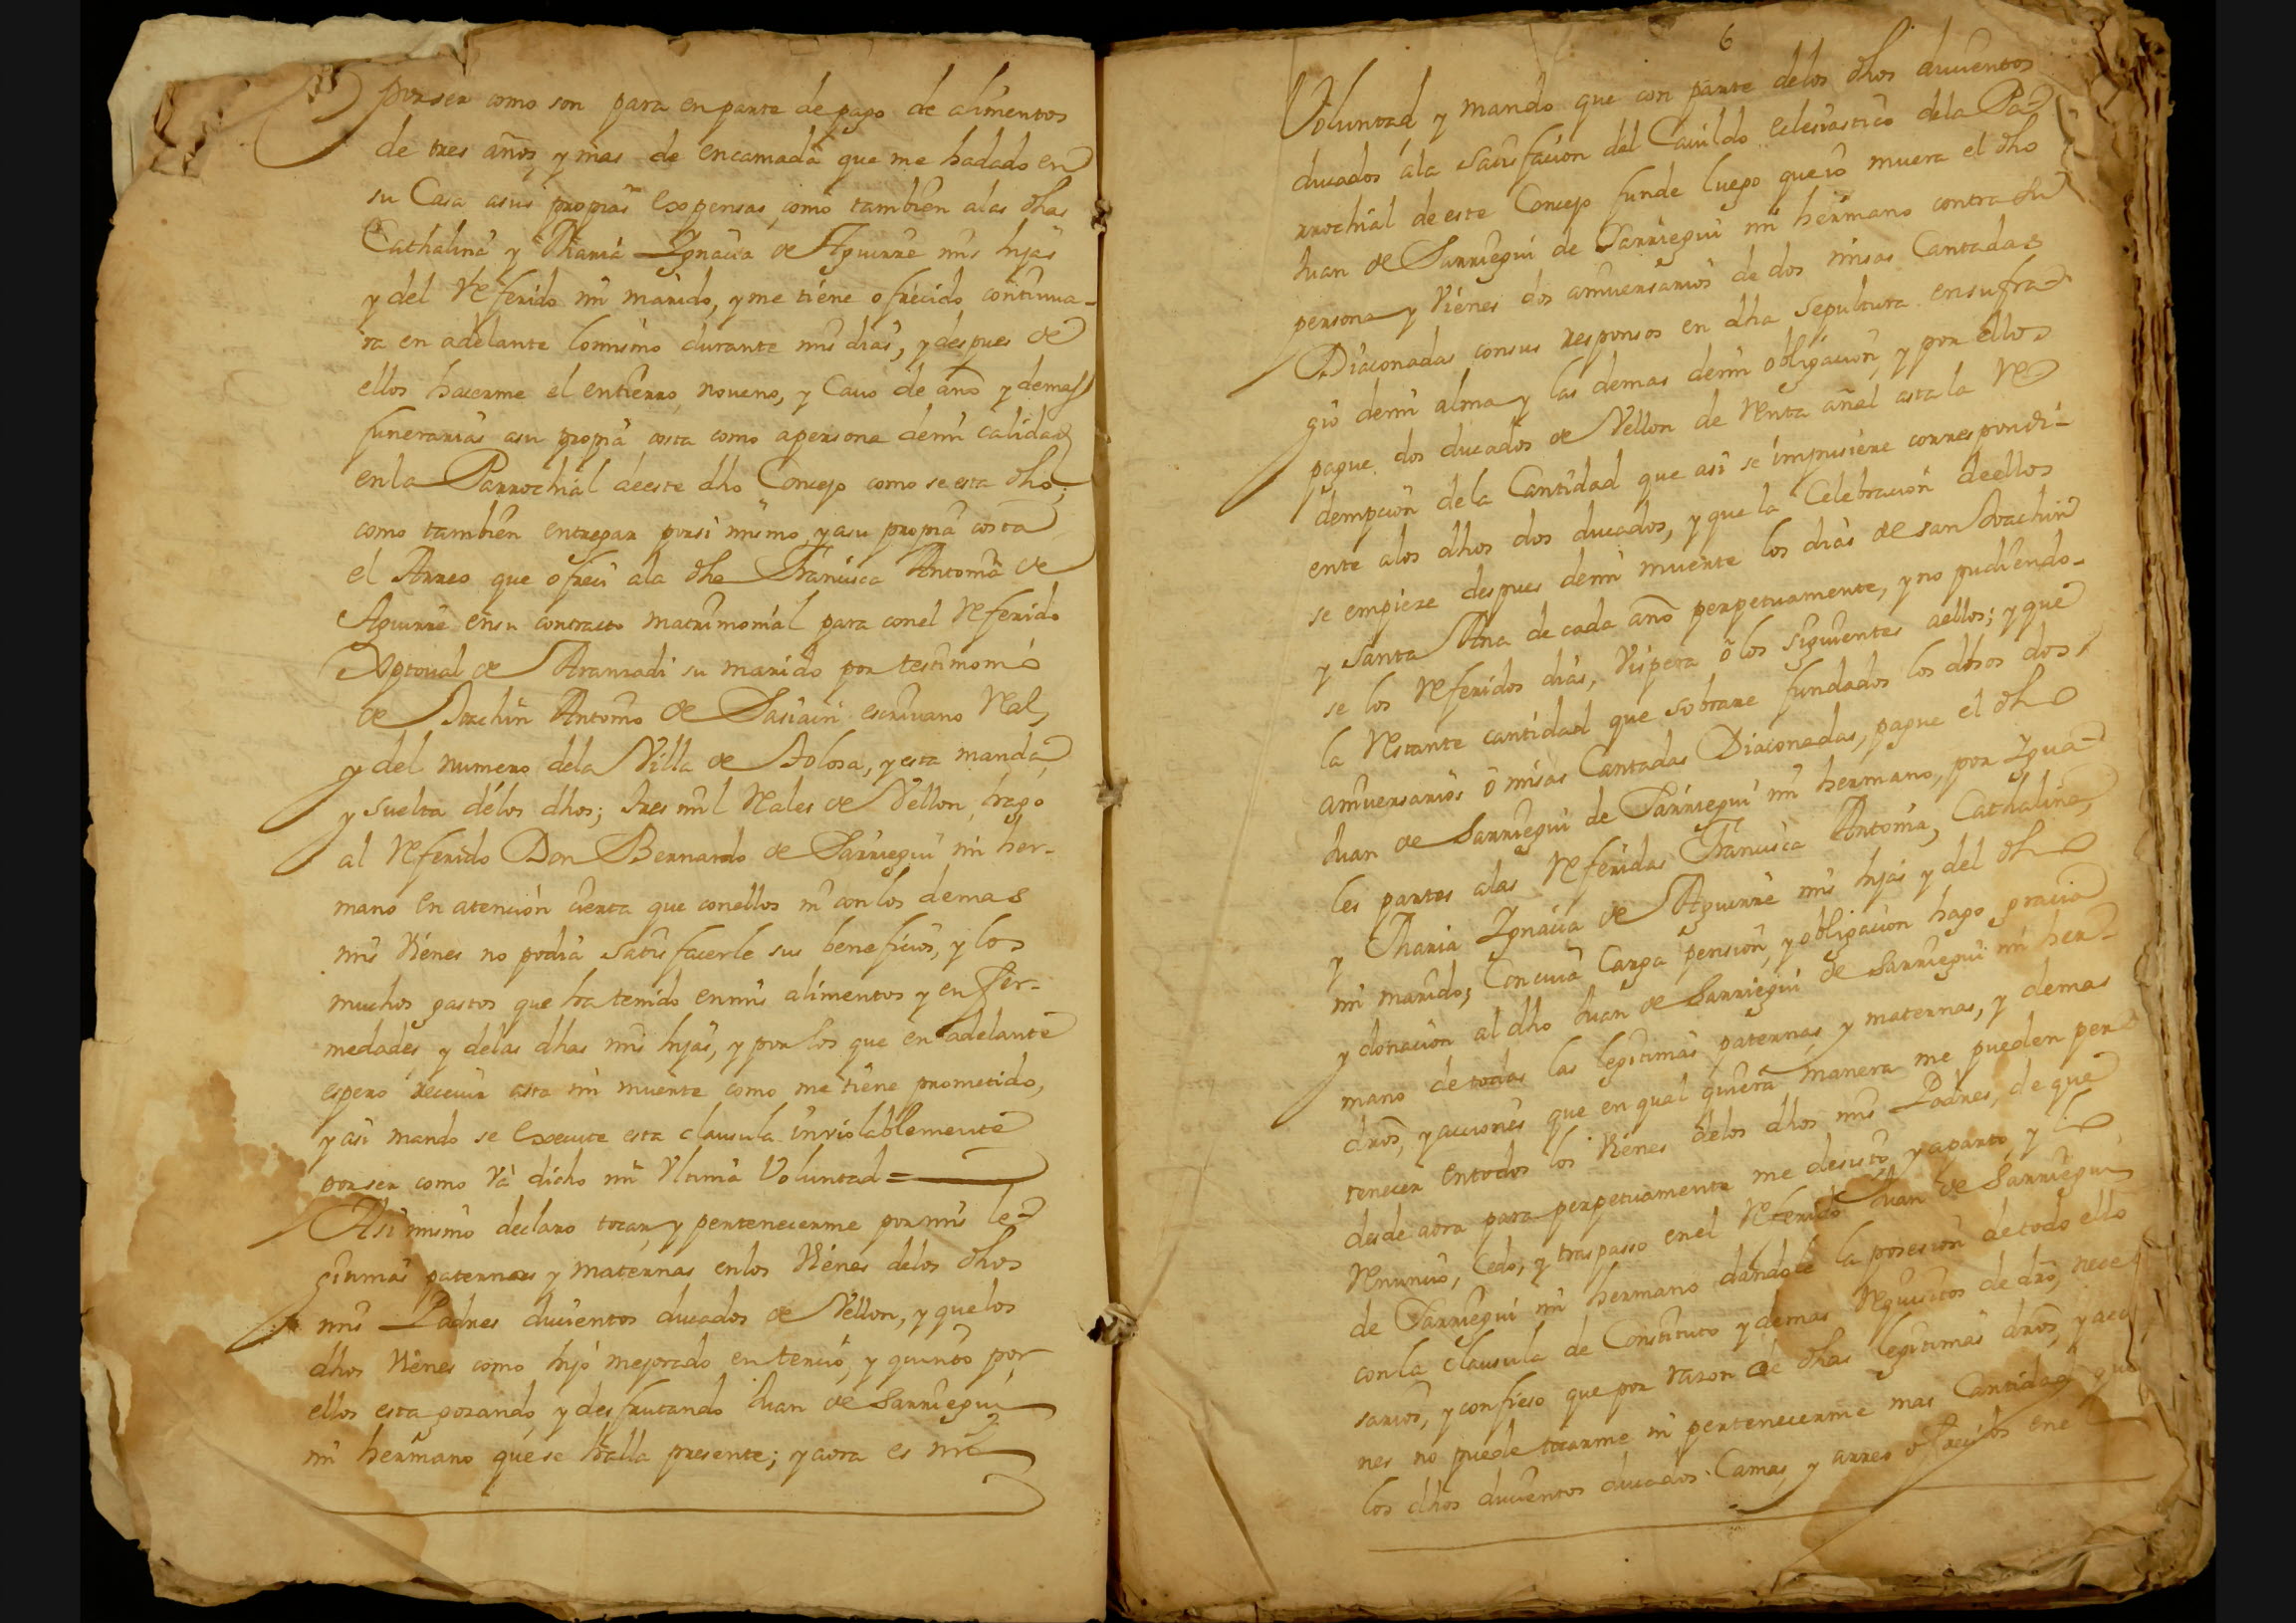 por ser como son para en parte de pago de alimentos
de tres años, y mas de encamada que me hadado en
su Casa asus propias Expensas, como tambien alas dhas
Cathalina y Maria Ignacia de Aguirre mis hijas
y del Referido mi marido, y me tiene ofrecido continua-
ra en adelante lomismo durante mis dias, y despues de
ellos hacerme el entierro, noueno, y Cauo de año y demas
funerarias asu propia costa como apersona demi calidad
enla Parrochial deeste dho Concejo como se esta dho;
como tambien entregar porsi mismo, yasu propia costa
el Arreo que ofreci ala dha Francisca Antonia de
Aguirre ensu contracto matrimonial para conel Referido
Xptoual de Aranradi su marido por testimonio
de Joachin Antonio de Sasiain escriuano Real,
y del numero dela Villa de Tolosa, yesta manda,
y suelta delos dhos; tres mil Reales de Vellon, hago
al Referido Don Bernardo de Sarriegui mi her-
mano en atencion cierta que conellos ni con los demas
mis Vienes no podia satisfacerle sus beneficios, y los
muchos gastos que ha tenido enmis alimentos y enfer-
medades, y delas dhas mis hijas, y por los que en adelante
espero receuir asta mi muerte como me tiene prometido,
y asi mando se Execute esta clausula inviolablemente
por ser como Va dicho mi Vltima Voluntad =
Asimismo declaro tocar, y pertenecerme por mis le-
gitimas paternas y maternas enlos Vienes delos dhos
mis Padres ducientos ducados de Vellon, y quelos
dhos Vienes como hijo mejorado en tercio, y quinto por
ellos esta gozando, y desfrutando Juan de Sarriegui
mi hermano que se halla presente; y aora es mi
6
Voluntad, y mando que con parte delos dhos ducientos
ducados ala satisfacion del Cauildo eclesiastico dela Pa-
rrochial de este Concejo funde luego queio muera el dho
Juan de Sarriegui de Sarriegui mi hermano contra su
persona y Vienes dos aniuersarios de dos misas Cantadas
Diaconadas consus responsos en dha sepultura ensufra-
gio demi alma y las demas demi obligacion, y por ellos
pague dos ducados de Vellon de Renta añal asta la Re
dempcion dela Cantidad que asi se impusiere correspondi-
ente alos dhos dos ducados, y que la Celebracion deellos
se empieze despues demi muerte los dias de san Joachin
y Santa Ana de cada año perpetuamente, y no pudiendo-
se los Referidos dias, Vispera ò los siguientes aellos; y que
la Restante cantidad que sobrare fundados los dhos dos
aniuersarios ò misas Cantadas Diaconadas, pague el dho
Juan de Sarriegui de Sarriegui mi hermano, por Igua-
les partes alas Referidas Francisca Antonia, Cathalina,
y Maria Ignacia de Aguirre mis hijas y del dho
mi marido; Con cuia Carga pension, y obligacion hago gracia
y donacion al dho Juan de Sarriegui de Sarriegui mi her-
mano de todas las legitimas paternas, y maternas, y demas
dros, yacciones que en qual quiera manera me pueden per
tenecer entodos los Vienes delos dhos mis Padres, de que
desde aora para perpetuamente me desisto, yaparto, y lo
Renuncio, Cedo, y traspasso enel Referido Juan de Sarriegui
de Sarriegui mi hermano dandole la posesion detodo ello
conla clausula de Constituto y demas Requisitos de dro, nece
sarios, y confieso que por razon de dhas legitimas dros, y accio
nes no puede tocarme ni pertenecerme mas Cantidad que
los dhos ducientos ducados Camas, y arreo ofrecidos enel